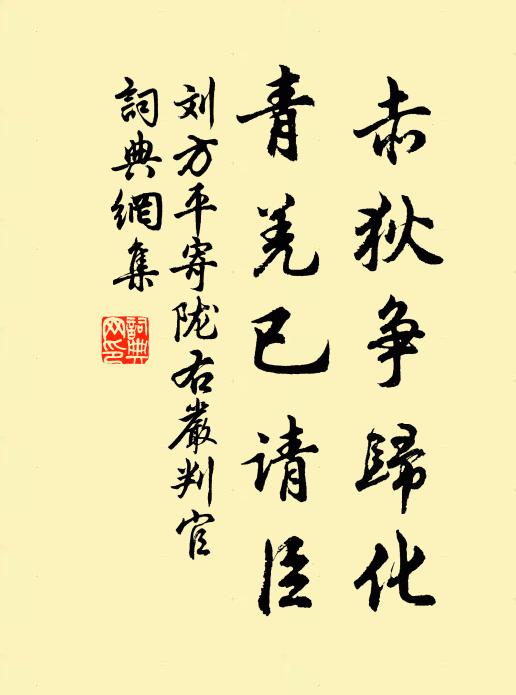 赤狄争歸化
青羌已请臣
刘方平寄陇右嚴判官
詞典網集
詞典网印